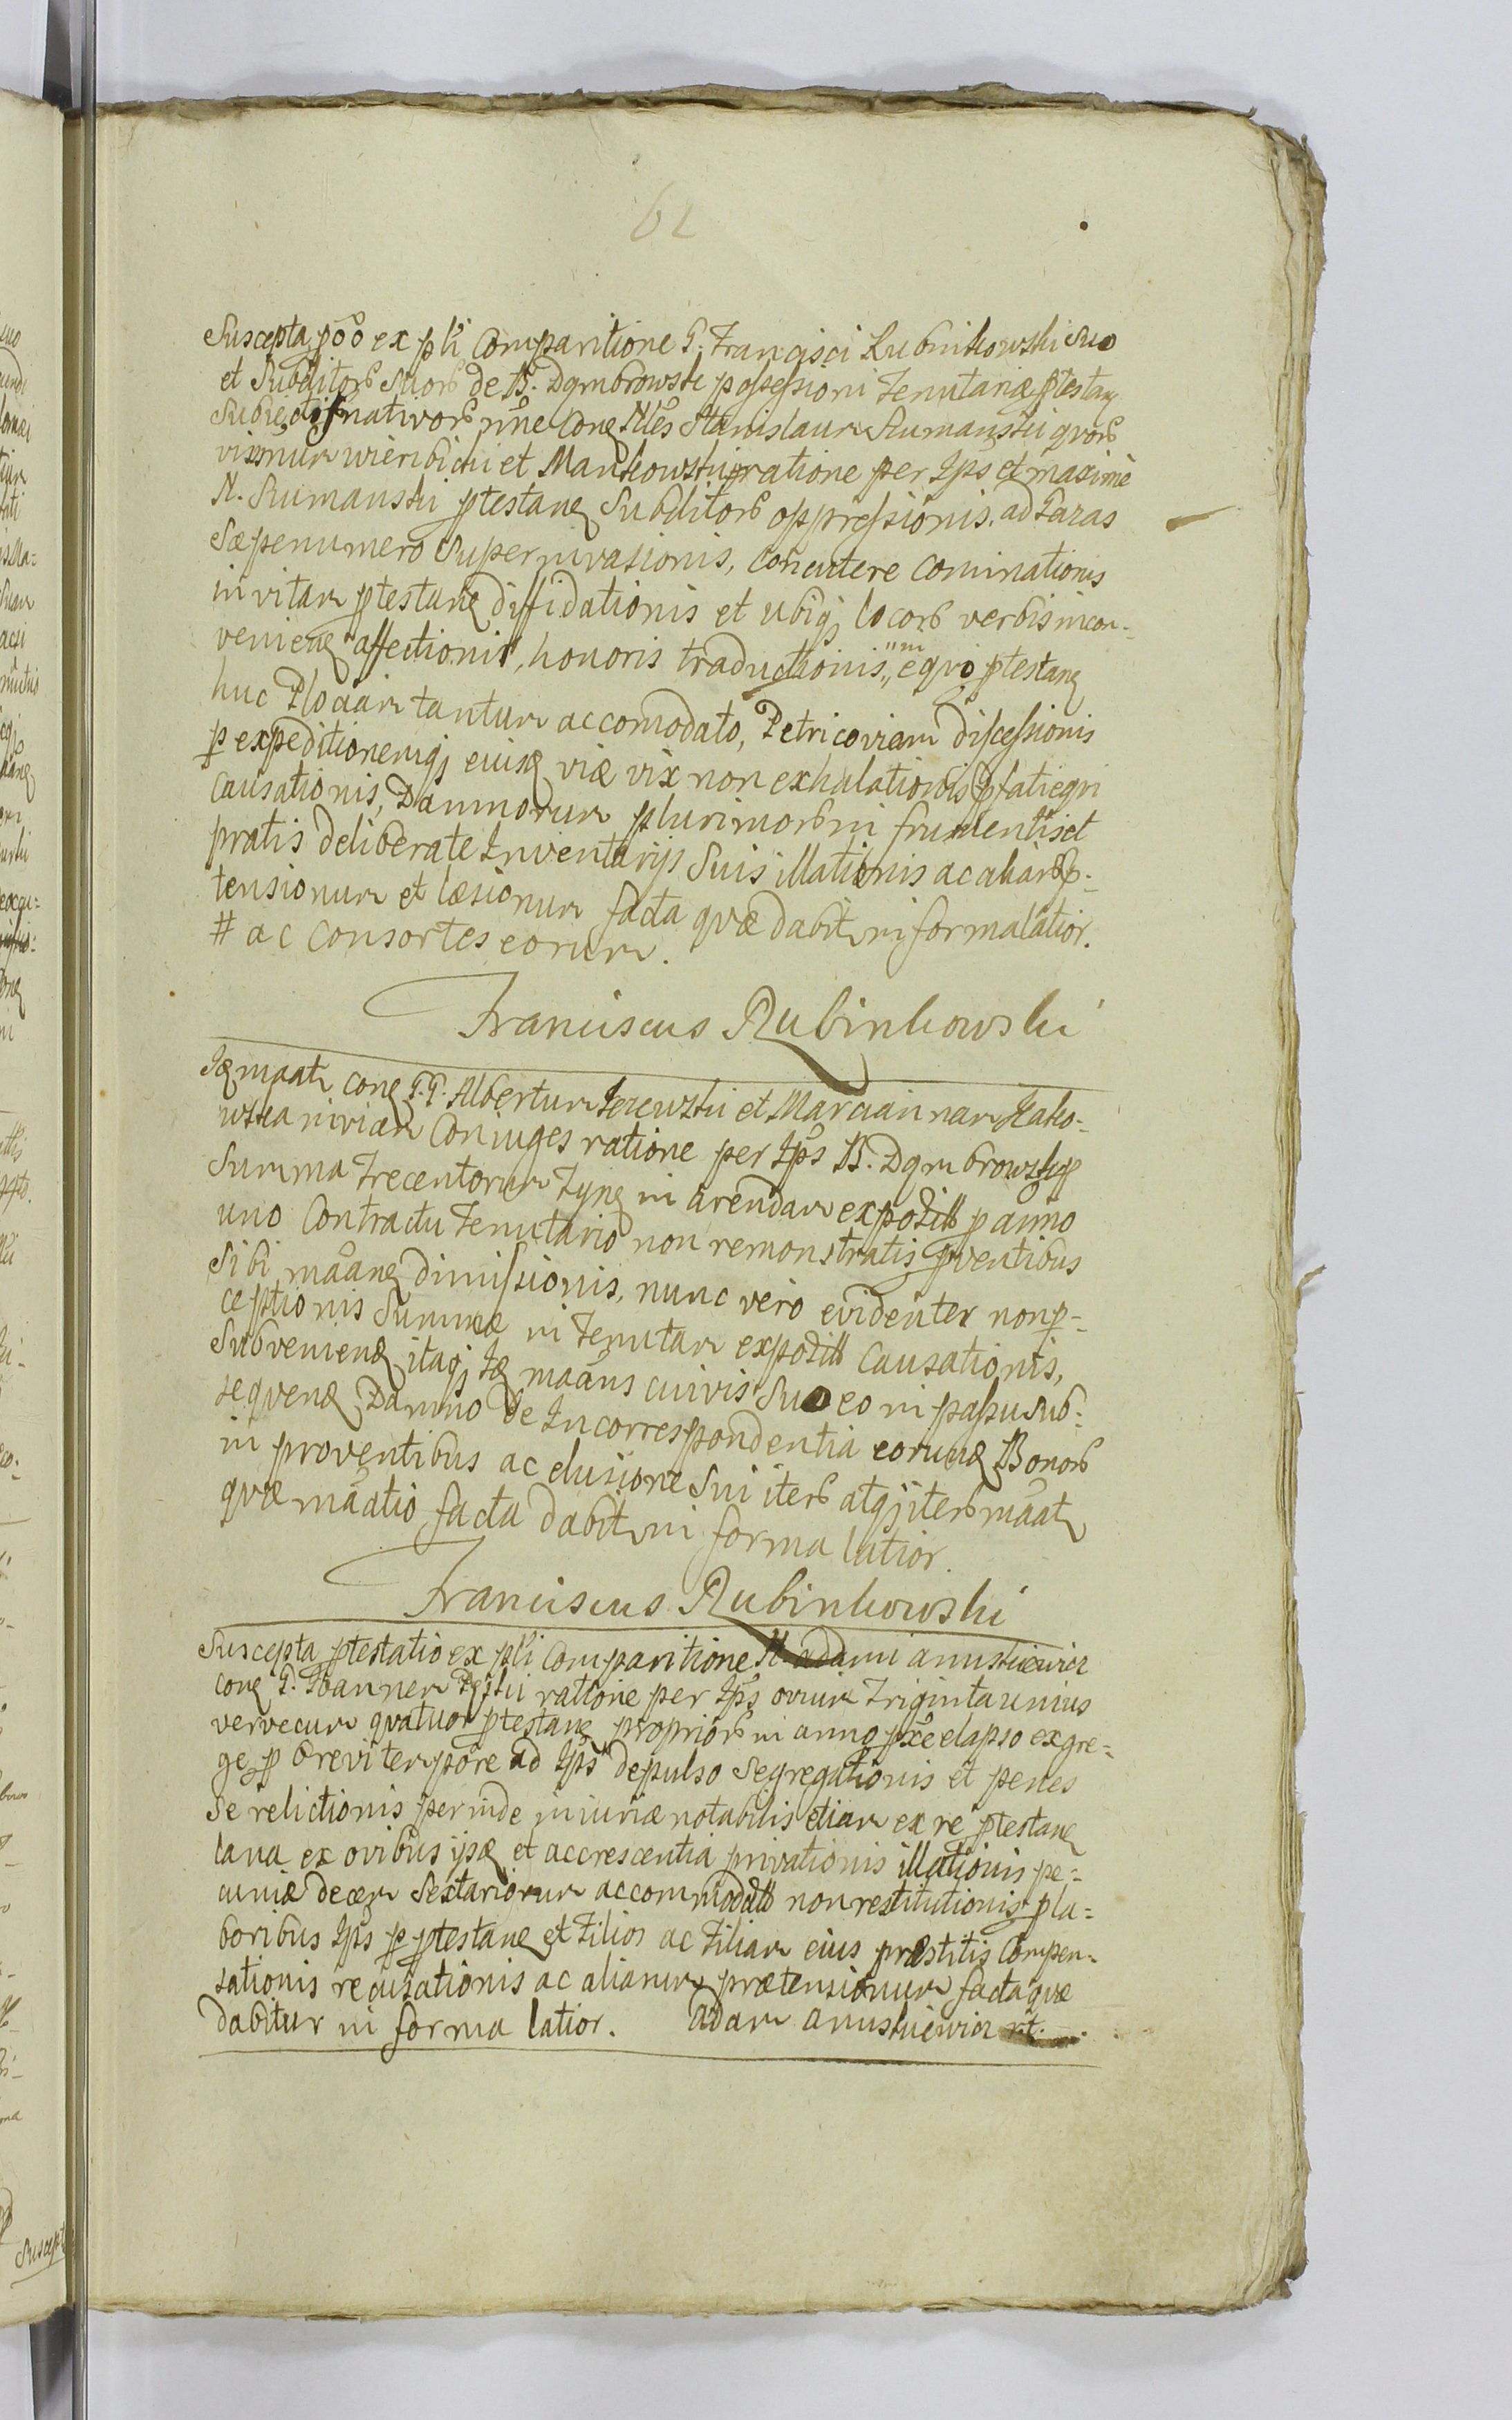 62
Suscepta põo ex pli Comparitione G. Francisci Rubinkowski Suo
et Subditorū Suorū de B. Dąmbrowski possessioni Tenutariæ ptestanę
Subiectorū nativorū nñe Conę Nles Stanislaum Rumański qvorū
et Mankowski ratione per Ips et maxime
N. Rumanski ptestanę Subditorū oppressionis, ad Faras
Sæpenumero Superinvasionis, concutere Cominationis
in vitam ptestanę diffidationis et ubiq; locorū verbis incon-
venienę affectionis, honoris traductionis, eqvo ptestanę
huc Plociam tantum accomodato, Petricoviam discessionis
p expeditionemq; eiusę viæ vix non exhalationis pfati eqvi
Causationis, Damnorum plurimorū in frumentis et
pratis deliberate Inventarijs Suis illationis ac aliarū p-
tensionum et læsionum facta qvæ dabitur in forma latior.
# ac Consortes eorum.
Franciscus Rubinkowski
Ię maatr conę G.G. Albertum Jezewski et Mariannam Rako-
wska Coniuges ratione per Ips B. Dąmbrowskię p
Summa Trecentorum Tynę in arendam expositū p anno
uno Contractu Tenutario non remonstratis pventibus
Sibi maanę dimissionis, nunc vero evidenter non p-
ceptionis Summæ in Tenutam expositū Causationis,
Subvenienę itaq; Ię maans cuivis Suo eo in passu Sub-
seqvenę Damno de Incorrespondentia eorundę Bonorū
in proventibus ac elusione Sui iterū atq; iterū maatr
qvæ maatio facta dabitur in forma latior.
Franciscus Rubinkowski
Suscepta ptestatio ex pli Comparitione N. Adami Anuskiewicz
conę G. Joannem ratione per Ips ovium Triginta unius
vervecum qvatuor ptestanę propriorū in anno pxe elapso ex gre-
ge p brevi tempore ad Ips depulso Segregationis et penes
Se relictionis perinde iniuriæ notabilis etiam ex re ptestanę
lana ex ovibus ijsę et accrescentia privationis illationis pe-
cuniæ decem Sextariorum accommodatū non restitutionis p la-
boribus Ips p ptestanę et Filios ac Filiam eius præstitis Compen-
sationis recusationis ac aliarum prætensionum facta qvæ
dabitur in forma latior. Adam Anuskiewicz